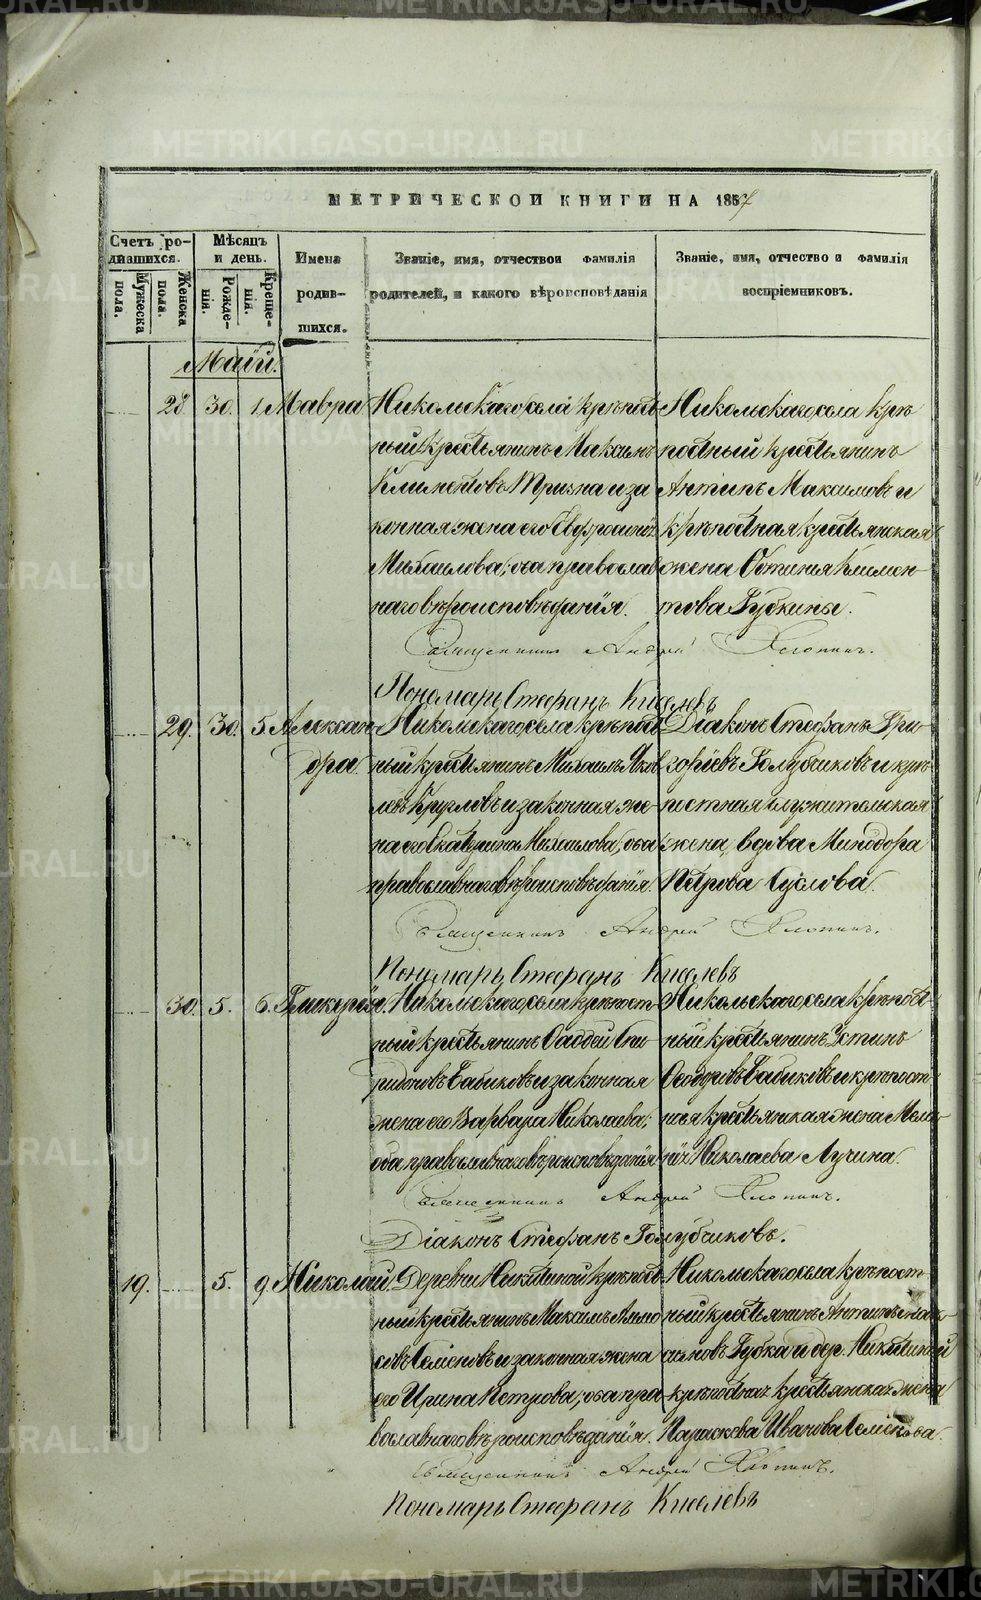 МЕТРИЧЕСКОЙ КНИГИ НА 1857
Счетъ ро-
дившихся.
Мужеска
пола.
Женска
пола.
Мѣсяцъ
и день.
Рожде-
нія.
Креще-
нія.
Имена
родив-
шихся.
Званіе, имя, отчество и фамилія
родителей, и какого вѣроисповѣданія
Званіе, имя, отчество и фамилія
воспріемниковъ.
Маій.
28 30. 1. Мавра
Никольскаго села крѣпост
ный крестьянинъ Максимъ
Климентовъ Тризна и за
конная жена его Евфросинія
Михаилова, оба православ
наго вѣроисповѣданія.
Никольскаго села крѣ
постный крестьянинъ
Антипъ Максимовъ и
крѣпостная крестьянская
жена Устинія Климен-
това Губкины.
Священникъ Андрей Хлопинъ.
Пономарь Стефанъ Киселевъ
29. 30. 5. Алексан-
дра.
Никольскаго села крѣпост
ный крестьянинъ Михаилъ Яков
левъ Кругловъ и законная же-
на его Екатерина Михаилова, оба
православнаго вѣроисповѣданія.
Діаконъ Стефанъ Гри-
горіевъ Голубчиковъ и крѣ-
постная служительская
жена, вдова Минодора
Петрова Суслова.
Священникъ Андрей Хлопинъ.
Пономарь Стефанъ Киселевъ
30. 5. 6. Гликерія.
Никольскаго села крѣпост-
ный крестьянинъ Фаддей Спи
ридоновъ Бабиковъ и законная
жена его Варвара Николаева;
оба православнаго вѣроисповѣданія
Никольскаго села крѣпост-
ный крестьянинъ Устинъ
Феодоровъ Бабиковъ и крѣпост-
ная крестьянская жена Мела-
нія Николаева Лучина.
Священникъ Андрей Хлопинъ.
Діаконъ Стефанъ Голубчиковъ.
19. 5. 9. Николай.
Деревни Никитиной крѣпост
ный крестьянинъ Максимъ
Семеновъ и законная жена
его Ирина Петрова, оба пра
вославнаго вѣроисповѣданія.
Никольскаго села крѣпост-
ный крестьянинъ Антипъ Мак-
симовъ Губка и дер. Никитиной
крѣпостная крестьянская жена
Параскева Иванова Семенова.
Священникъ Андрей Хлопинъ.
Пономарь Стефанъ Киселевъ
METRIKI.GASO-URAL.RU